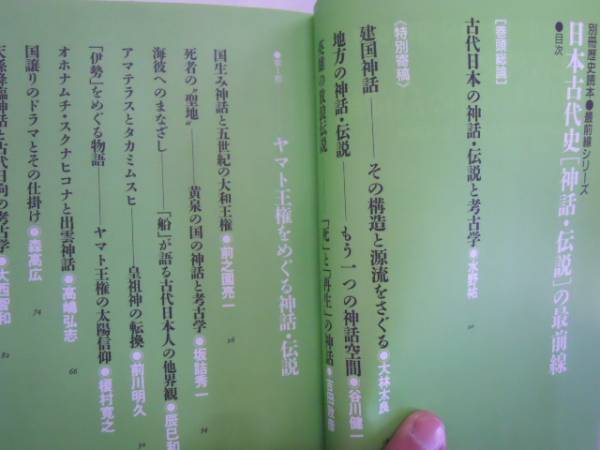 別冊歴史読本●最前線シリーズ
日本古代史[神話・伝説]の最前線
●目次
[巻頭総論]
古代日本の神話・伝説と考古学●水野祐
〈特別寄稿〉
建国神話――その構造と源流をさぐる●大林太良
地方の神話・伝説――もう一つの神話空間●谷川健一
「死」と「再生」の神話●吉田敦彦
ヤマト王権をめぐる神話・伝説
国生み神話と五世紀の大和王権●前之園亮一
死者の“聖地”――黄泉の国の神話と考古学●坂詰秀一
海彼へのまなざし――「船」が語る古代日本人の他界観●辰巳和
アマテラスとタカミムスヒ――皇祖神の転換●前川明久
「伊勢」をめぐる物語――ヤマト王権の太陽信仰●榎村寛之
オホナムチ・スクナヒコナと出雲神話●高嶋弘志 66
国譲りのドラマとその仕掛け●森高広 74
天孫降臨神話と古代日向の考古学●大西智和 82